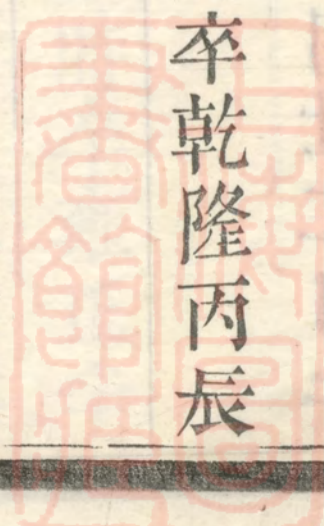 卒乾隆丙辰